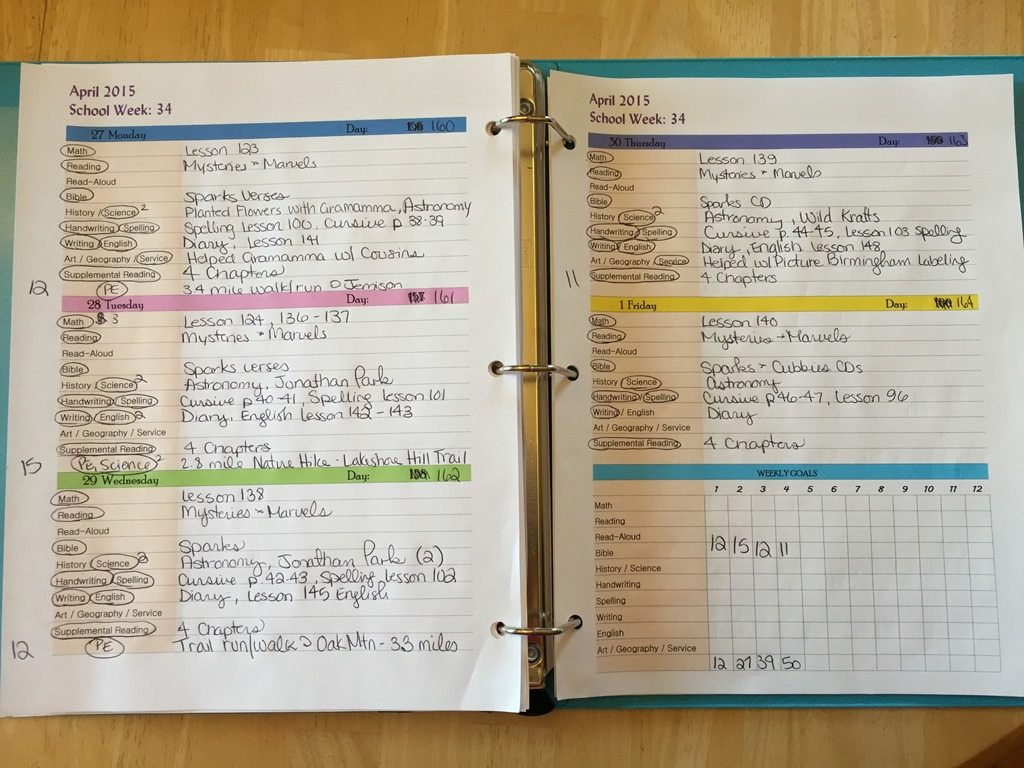 April 2015
School Week: 34
27 Monday Day: 160
Math Lesson 123
Reading Mysteries + Marvels
Read-Aloud
Bible Sparks Verses
History / Science 2 Planted Flowers with Gramamma, Astronomy
Handwriting / Spelling Spelling Lesson 100, Cursive p 38-39
Writing / English Diary, Lesson 141
Art / Geography / Service Helped Gramamma w/ Cousins
Supplemental Reading 4 Chapters
12 PE 3.4 mile walk/run @ Jemison
28 Tuesday Day: 161
Math 3 Lesson 124, 136-137
Reading Mysteries + Marvels
Read-Aloud
Bible Sparks verses
History / Science 2 Astronomy, Jonathan Park
Handwriting / Spelling Cursive p 40-41, Spelling lesson 101
Writing / English 2 Diary, English Lesson 142-143
Art / Geography / Service
Supplemental Reading 4 Chapters
15 PE, Science 2 2.8 mile Nature Hike - Lakeshore Hill Trail
29 Wednesday Day: 162
Math Lesson 138
Reading Mysteries + Marvels
Read-Aloud
Bible Sparks
History / Science 3 Astronomy, Jonathan Park (2)
Handwriting / Spelling Cursive p. 42-43, Spelling lesson 102
Writing / English Diary, Lesson 145 English
Art / Geography / Service
Supplemental Reading 4 Chapters
12 PE Trail run/walk @ Oak Mtn - 3.3 miles
April 2015
School Week: 34
30 Thursday Day: 163
Math Lesson 139
Reading Mysteries + Marvels
Read-Aloud
Bible Sparks CD
History / Science 2 Astronomy, Wild Krafts
Handwriting / Spelling Cursive p. 44-45, Lesson 103 Spelling
Writing / English Diary, English lesson 148
Art / Geography / Service Helped w/ Picture Birmingham Labeling
11 Supplemental Reading 4 Chapters
1 Friday Day: 164
Math Lesson 140
Reading Mysteries + Marvels
Read-Aloud
Bible Sparks + Cubbies CDs
History / Science Astronomy
Handwriting / Spelling Cursive p 46-47, Lesson 96
Writing / English Diary
Art / Geography / Service
Supplemental Reading 4 Chapters
WEEKLY GOALS
1 2 3 4 5 6 7 8 9 10 11 12
Math
Reading
Read-Aloud
12 15 12 11
Bible
History / Science
Handwriting
Spelling
Writing
English
Art / Geography / Service
12 27 39 50